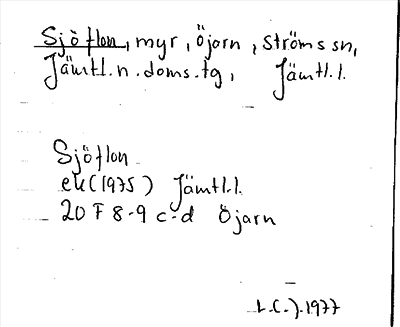 Sjöflon, myr, Öjarn, Ströms sn,
Jämtl.n.doms.tg, Jämtl.l.
Sjöflon
ek(1975) Jämtl.l.
20 F 8-9 c-d Öjarn
1977